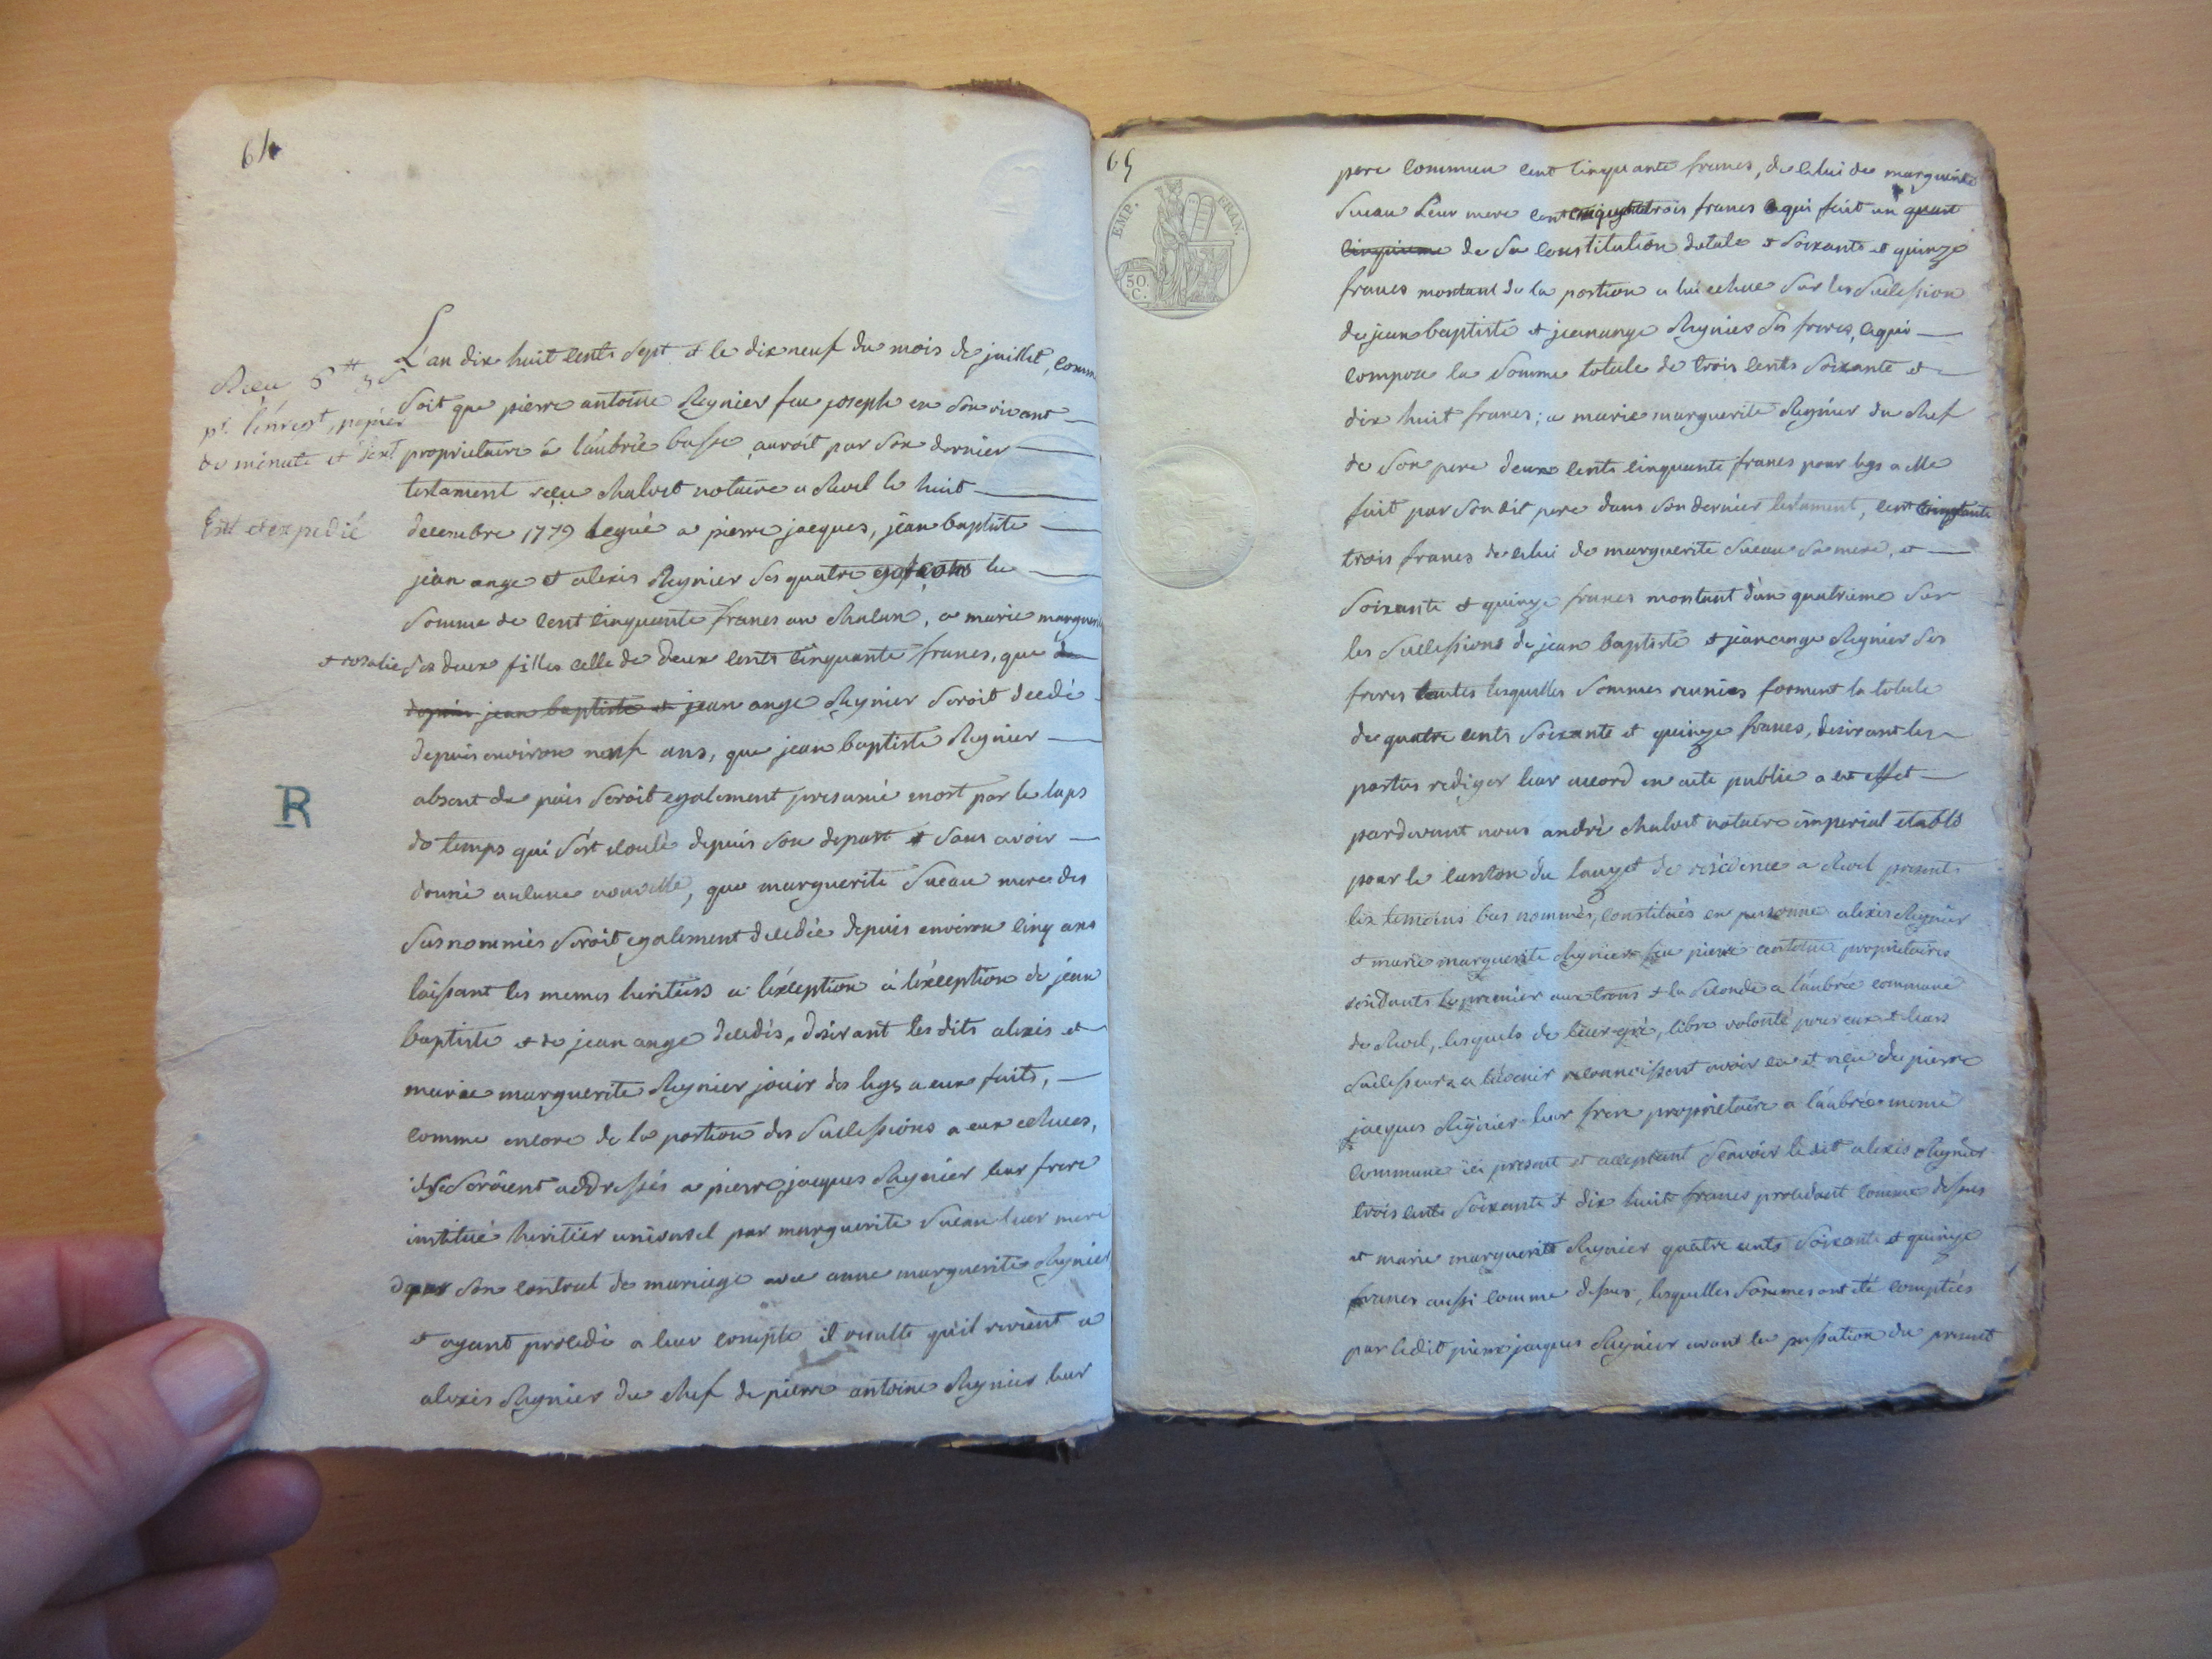 64
L'an dix huit cents sept et le dix neuf du mois de juillet, comm
soit que pierre antoine Reynier feu joseph en son vivant
proprietaire à l'aubrée basse auroit par son dernier
testament reçu Chalvet notaire a Revel le huit
decembre 1779 legué a pierre jacques, jean baptiste
jean ange et alexis Reynier ses quatre la
somme de cent cinquante francs un chalun, a marie margueri
et rosalie ses deux filles celle de deux cents cinquante francs, que
depuis jean baptiste et jean ange Reynier seroit decedé
depuis environ neuf ans, que jean baptiste Reynier
absent du païs seroit egalement presumé mort par le laps
de temps qui s'est ecoulé depuis son depart et sans avoir
donné aucune nouvelle, que marguerite Sueau mere des
susnommés seroit egalement decedée depuis environ cinq ans
laissant les memes heritiers a l'exception à l'exception de jean
baptiste et de jean ange decedés, desirant les dits alexis et
marie marguerite Reynier jouir des legs a eux faits,
comme encore de la portion des successions a eux echues,
ils se seroient addressés a pierre jacques Reynier leur frere
institué heritier universel par marguerite Sueau leur mere
dans son contrat de mariage avec anne marguerite Reynier
et ayant procedé a leur compte il resulte qu'il revient a
alexis Reynier du chef de pierre antoine Reynier leur
Reçu 6
pr. l'enregt, papier
de minute et d'ext
Ext et expedié
R
65
EMP. FRAN.
50.
C.
pere commun cent cinquante francs, de celui de marguerite
Sueau Leur mere cent trois francs ce qui fait un quart
cinquieme de sa constitution dotale et soixante et quinze
francs montant de la portion a lui echue sur les succession
de jean baptiste et jean ange Reynier ses freres, ce qui
compose la somme totale de trois cents soixante et
dix huit francs; a marie marguerite Reynier du chef
de son pere deux cents cinquante francs pour legs a elle
fait par son dit pere dans son dernier testament, cent cinquante
trois francs de celui de marguerite Sueau sa mere, et
soixante et quinze francs montant d'un quatrieme sur
les successions de jean baptiste et jean ange Reynier ses
freres toutes lesquelles sommes reunies forment la totale
de quatre cents soixante et quinze francs, desirant les
parties rediger leur accord en acte public a cet effet
pardevant nous andré chalvet notaire imperial etabli
pour le canton du lauzet de residence a Revel present
les temoins bas nommés, constitués en personne alexis Reynier
et marie marguerite Reynier feu pierre antoine proprietaires
residants le premier aux trons et la seconde a l'aubrée commune
de Revel, lesquels de leur gré, libre volonté pour eux et leurs
successeurs a l'avenir reconnoissent avoir eu et reçu de pierre
jacques Reynier leur frere proprietaire a l'aubrée meme
commune ici present et acceptant sçavoir ledit alexis Reynier
trois cents soixante et dix huit francs procedant comme dessus
et marie marguerite Reynier quatre cents soixante et quinze
francs aussi comme dessus, lesquelles sommes ont été comptées
par ledit pierre jacques Reynier avant la passation du present